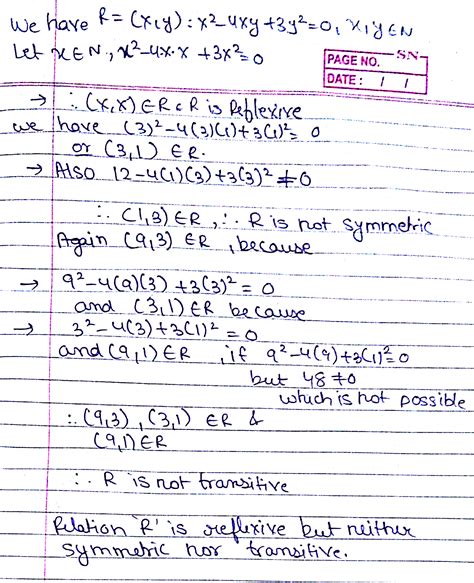 We have R = (x,y) : x²-4xy+3y²=0, x,y ∈ N
Let x ∈ N, x²-4x·x +3x²=0
SN
PAGE NO.
DATE : / /
→ ∴ (x,x) ∈ R ∴ R is Reflexive
we have (3)²-4(3)(1)+3(1)²= 0
or (3,1) ∈ R.
→ Also 12-4(1)(3)+3(3)² ≠ 0
∴ (1,3) ∈ R, ∴ R is not symmetric
Again (9,3) ∈ R, because
→ 9²-4(9)(3) +3(3)² = 0
and (3,1) ∈ R because
→ 3²-4(3)+3(1)² = 0
and (9,1) ∈ R, if 9²-4(9)+3(1)²=0
but 48 ≠ 0
which is not possible
∴ (9,3), (3,1) ∈ R &
(9,1) ∈ R
∴ R is not transitive
Relation 'R' is reflexive but neither
symmetric nor transitive.